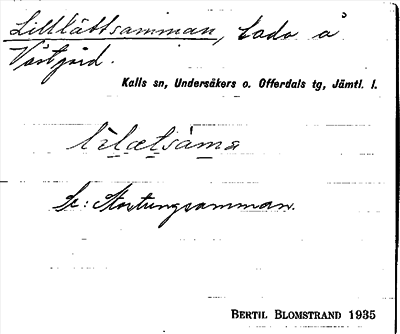 Lillättsamman, Lada å
Västgård.
Kalls sn, Undersåkers o. Offerdals tg, Jämtl. l.
Se: Stortungsamman.
BERTIL BLOMSTRAND 1935